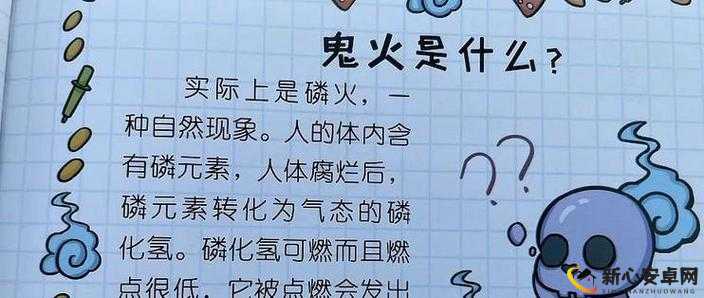 鬼火是什么?
实际上是磷火，一
种自然现象。人的体内含
有磷元素，人体腐烂后，
磷元素转化为气态的磷
化氢。磷化氢可燃而且燃
点很低，它被点燃会发出
??
新心安卓网